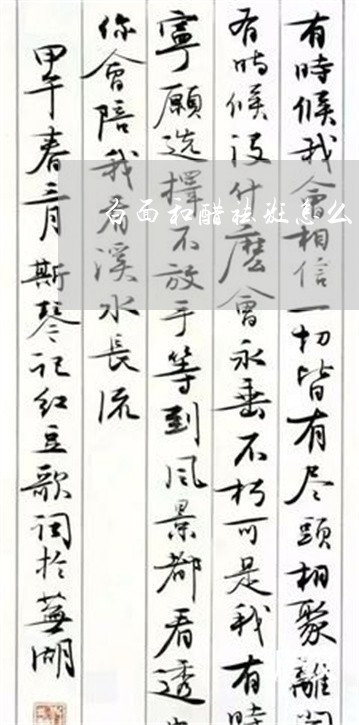 有時候我會相信一切皆有尽頭相聚離
有時候没什麽會永垂不朽可是我有時
寧願选擇不放手等到风景都看透
你會陪我看溪水長流
甲午春三月斯琴记红豆歌词於蕪湖
白面和醋祛斑怎么